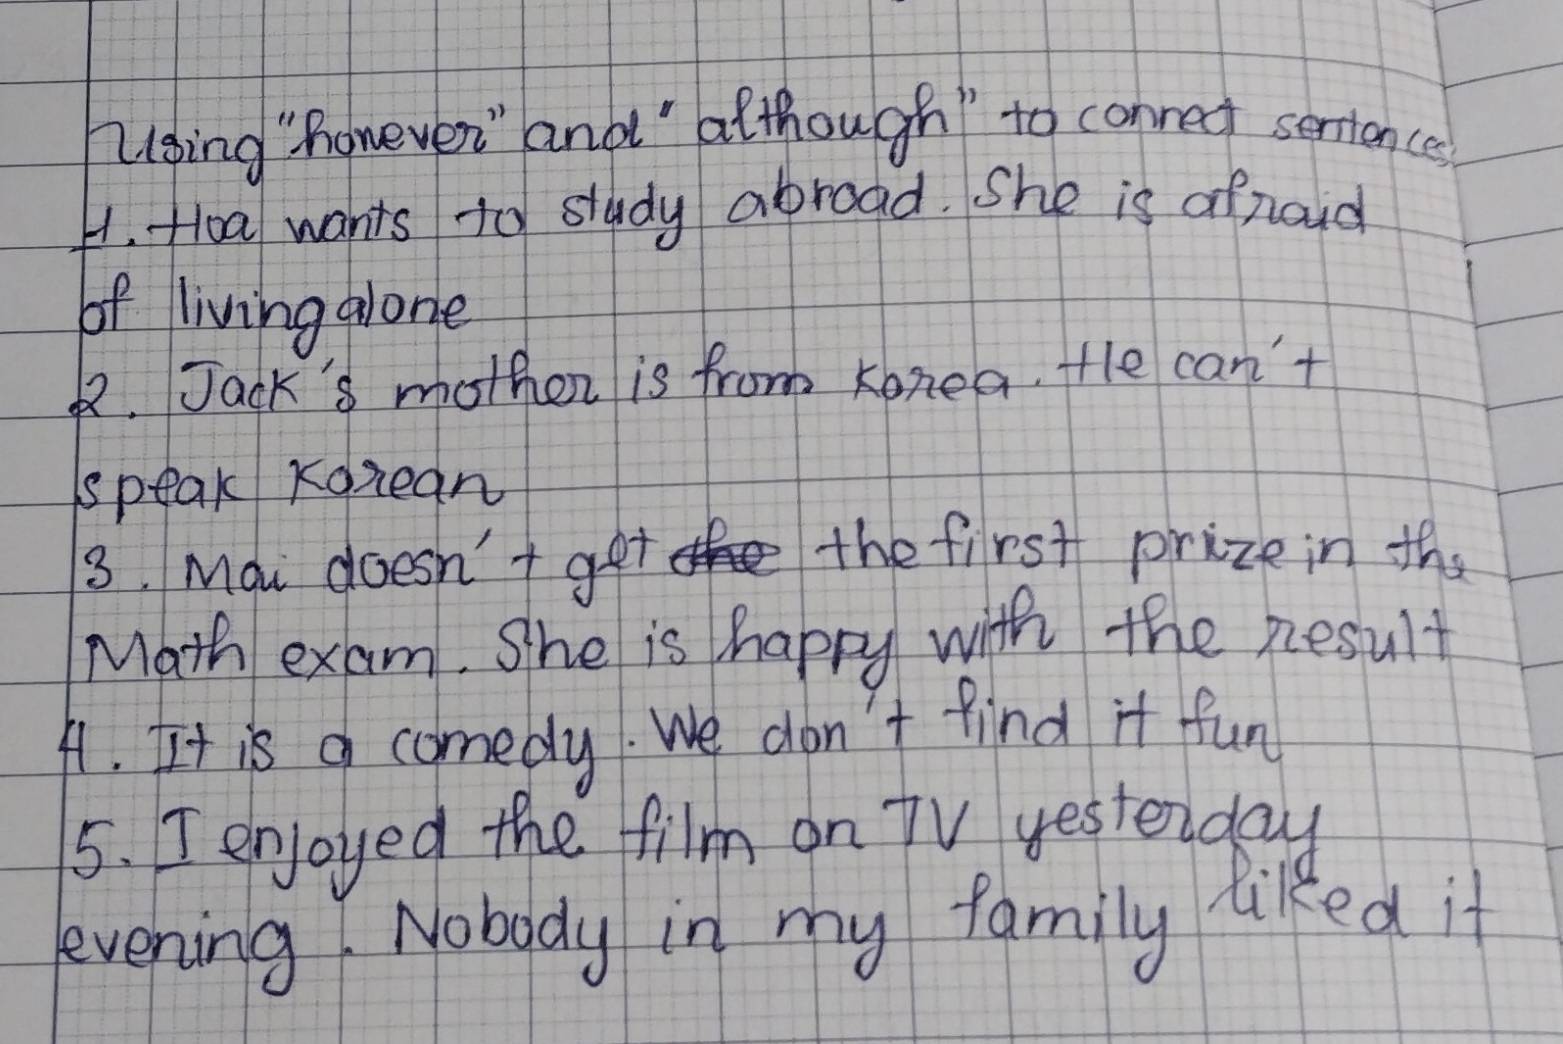 Using "however" and "although" to connect sentences.
1. Hoa wants to study abroad. She is afraid
of living alone
2. Jack's mother is from Korea. He can't
speak Korean
3. Mai doesn't get the the first prize in the
Math exam. She is happy with the result
4. It is a comedy. We don't find it fun
5. I enjoyed the film on TV yesterday
evening. Nobody in my family liked it